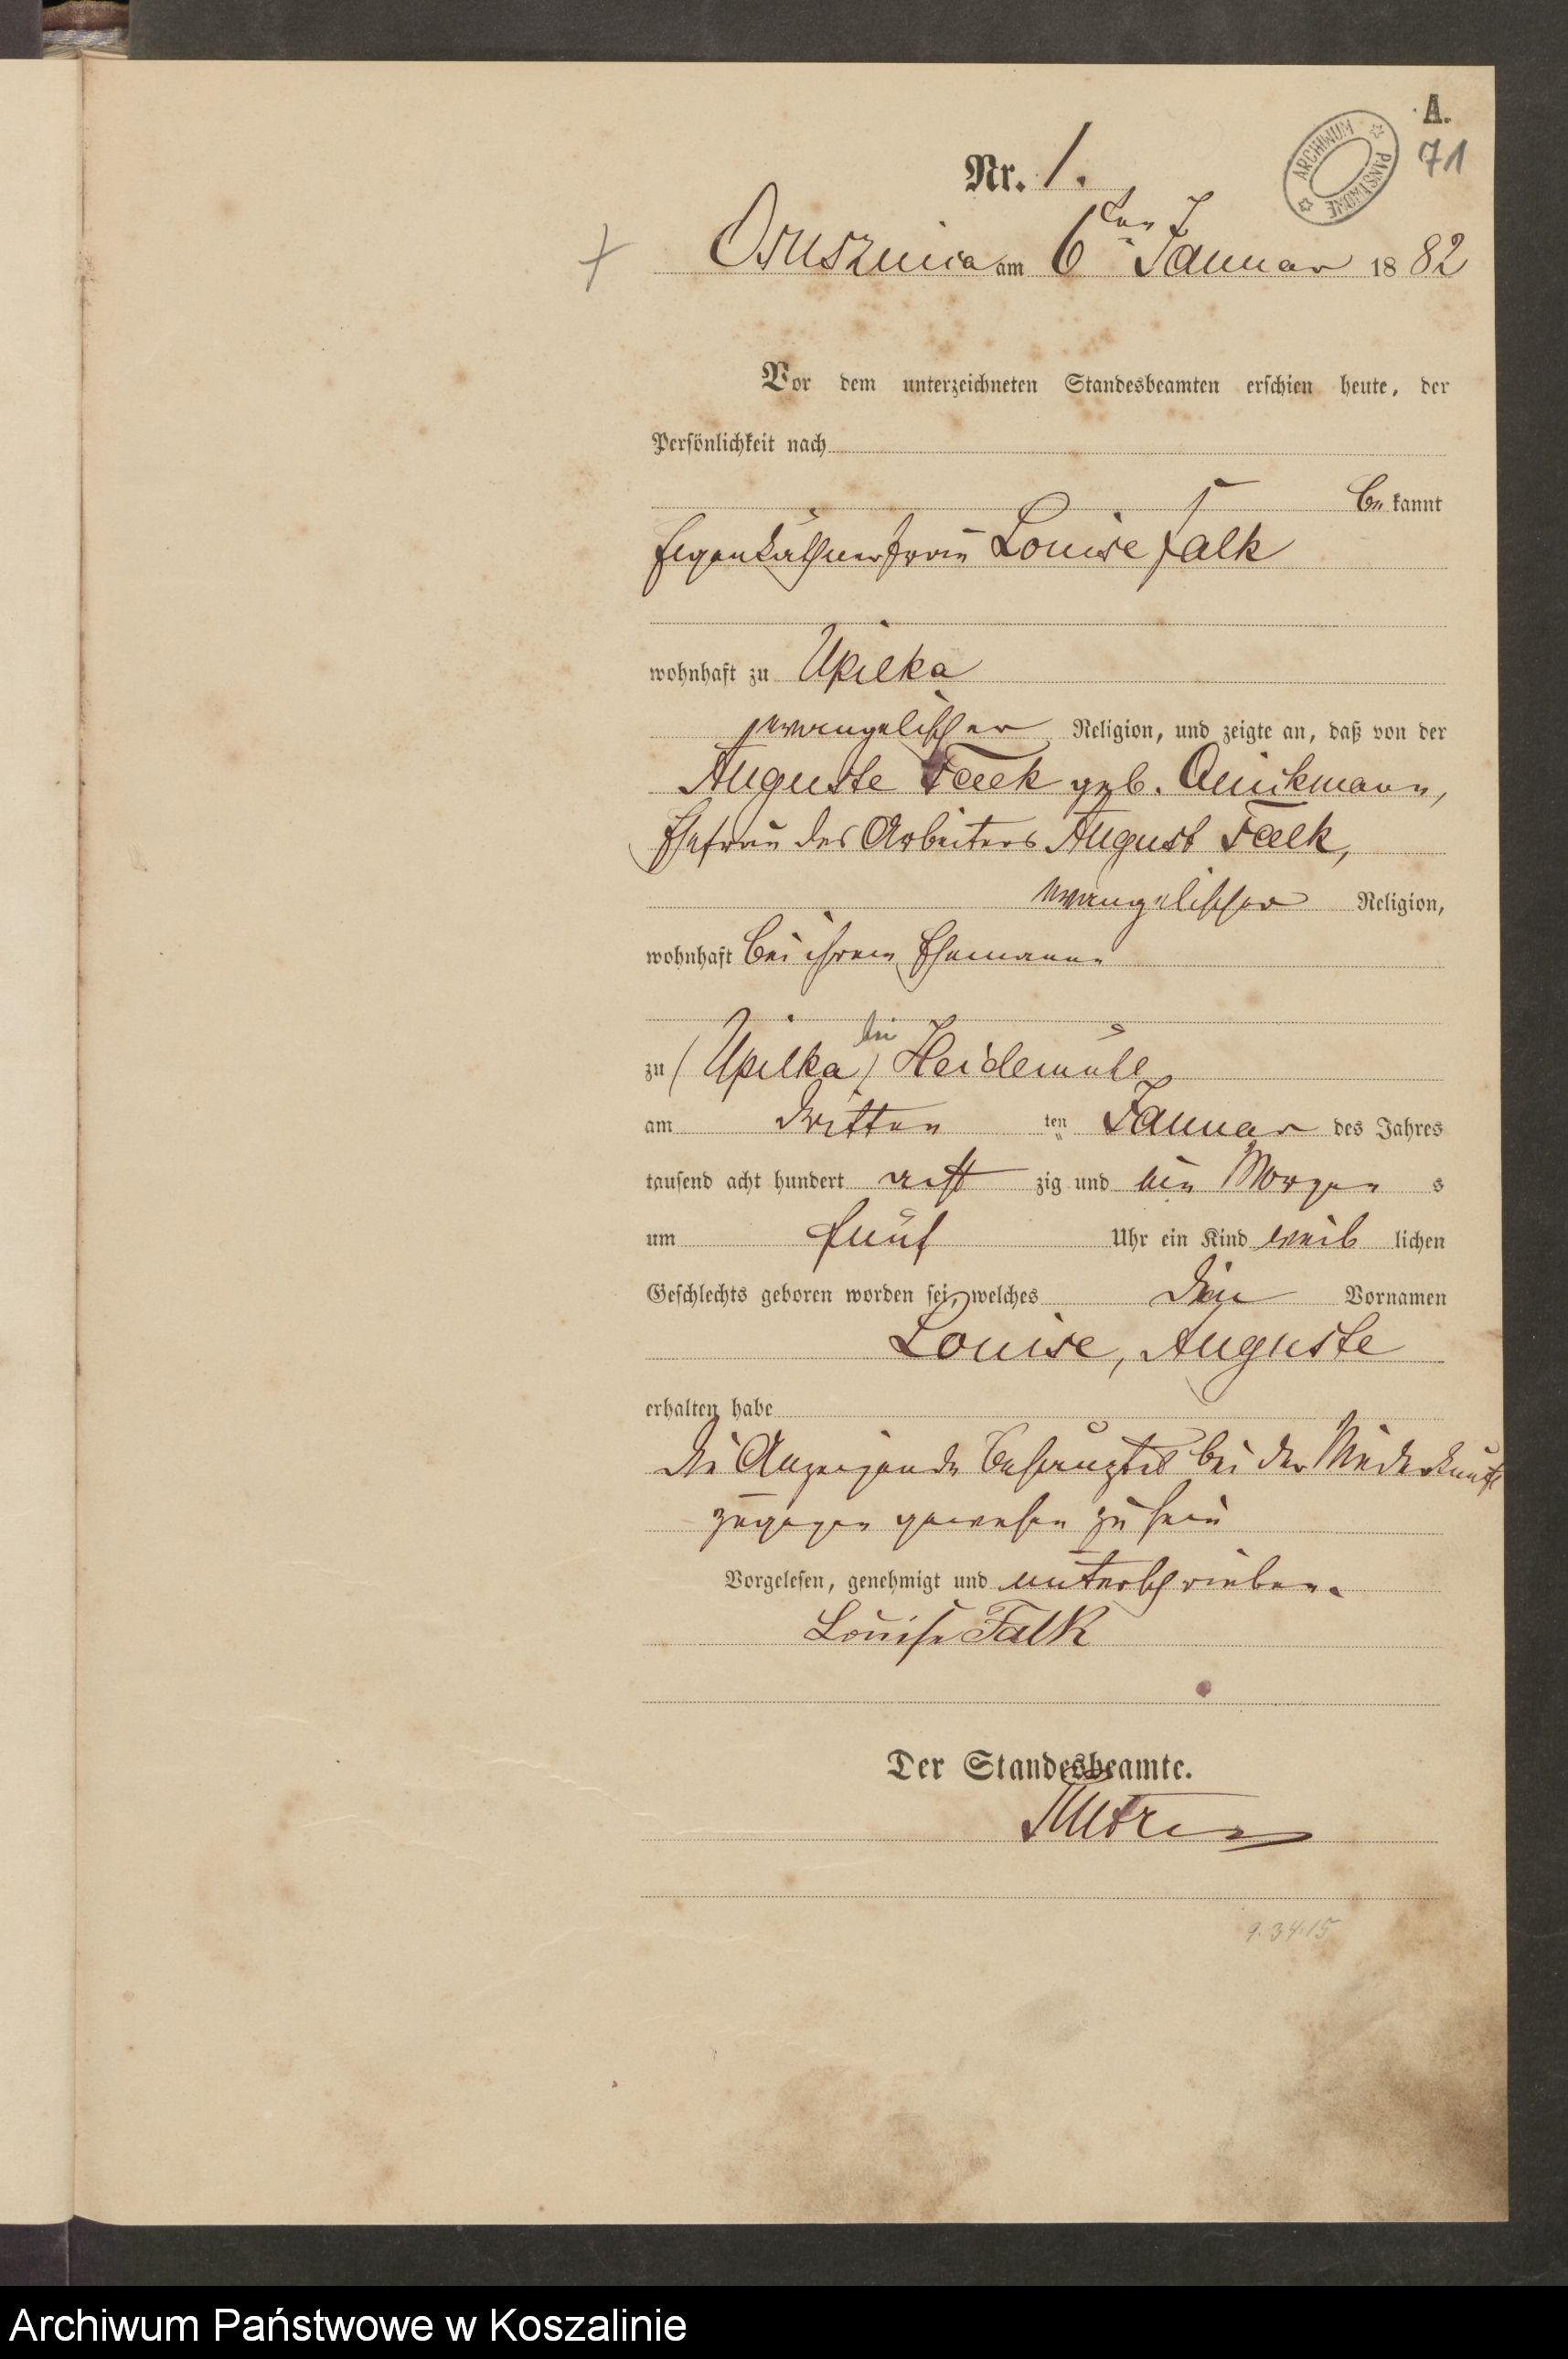 A.
71
ARCHIWUM PAŃSTWOWE
Nr. 1.
Osusznica am 6ten Januar 1882
Vor dem unterzeichneten Standesbeamten erschien heute, der
Persönlichkeit nach
be kannt
Eigenkäthnerfrau Louise Falk
wohnhaft zu Upilka
evangelischer Religion, und zeigte an, daß von der
Auguste Falk geb. Quickmann,
Ehefrau des Arbeiters August Falk,
evangelischer Religion,
wohnhaft bei ihrem Ehemanne
zu (Upilka) bei Heidemühl
am dritten ten Januar des Jahres
tausend acht hundert acht zig und ein Morgen s
um fünf Uhr ein Kind weib lichen
Geschlechts geboren worden sei, welches die Vornamen
Louise, Auguste
erhalten habe
die Anzeigende behauptet bei der Niederkunft
zugegen gewesen zu sein
Vorgelesen, genehmigt und unterschrieben.
Louise Falk
Der Standesbeamte.
9.34.15
Archiwum Państwowe w Koszalinie